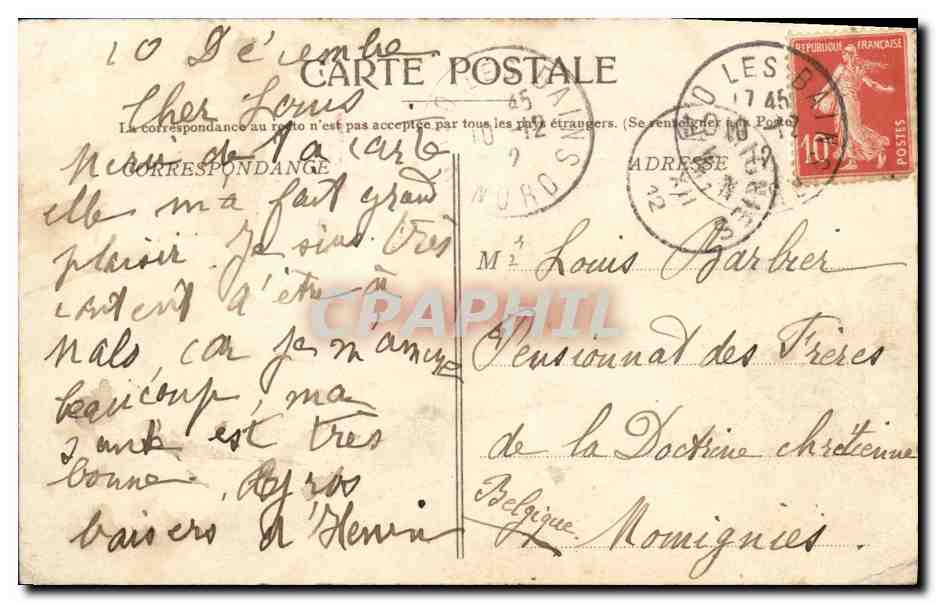 10 Décembre
CARTE POSTALE
Cher Louis
La correspondance au recto n'est pas acceptée par tous les pays étrangers. (Se renseigner à la Poste)
CORRESPONDANCE
Merci de ta carte
elle m'a fait grand
plaisir. Je suis très
content d'être à
Mals, car je m'amuse
beaucoup, ma
santé est très
bonne. gros
baisers d'Henri
ADRESSE
Mr Louis Barbier
Pensionnat des Frères
de la Doctrine chrétienne
Belgique
Momignies.
REPUBLIQUE FRANÇAISE
10c
POSTES
LES-BAINS
17 45
10 -12
45
BAINS
10 -12
2
NORD
12
CPAPHIL